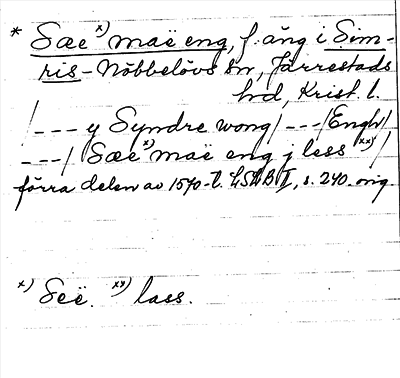 * Sæe x) maë eng, f. äng i Sim-
ris-Nöbbelövs sn, Järrestads
hd, Krist. l.
/--- y Syndre wong/---/Engh/
---/ Sæe x) maë eng j less xx)/
förra delen av 1570-t. LSÄB I, s. 240. orig.
x) Seë. xx) lass.